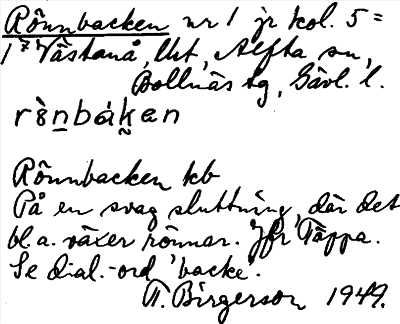 Rönnbacken nr 1 jr kol. 5 =
1⁷ Västanå, Uht, Alfta sn,
Bollnäs tg, Gävl. l.
Rönnbacken kb
På en svag sluttning, där det
bl a. växer rönnar. Jfr Täppa.
Se dial.-ord 'backe'.
T. Birgerson 1949.